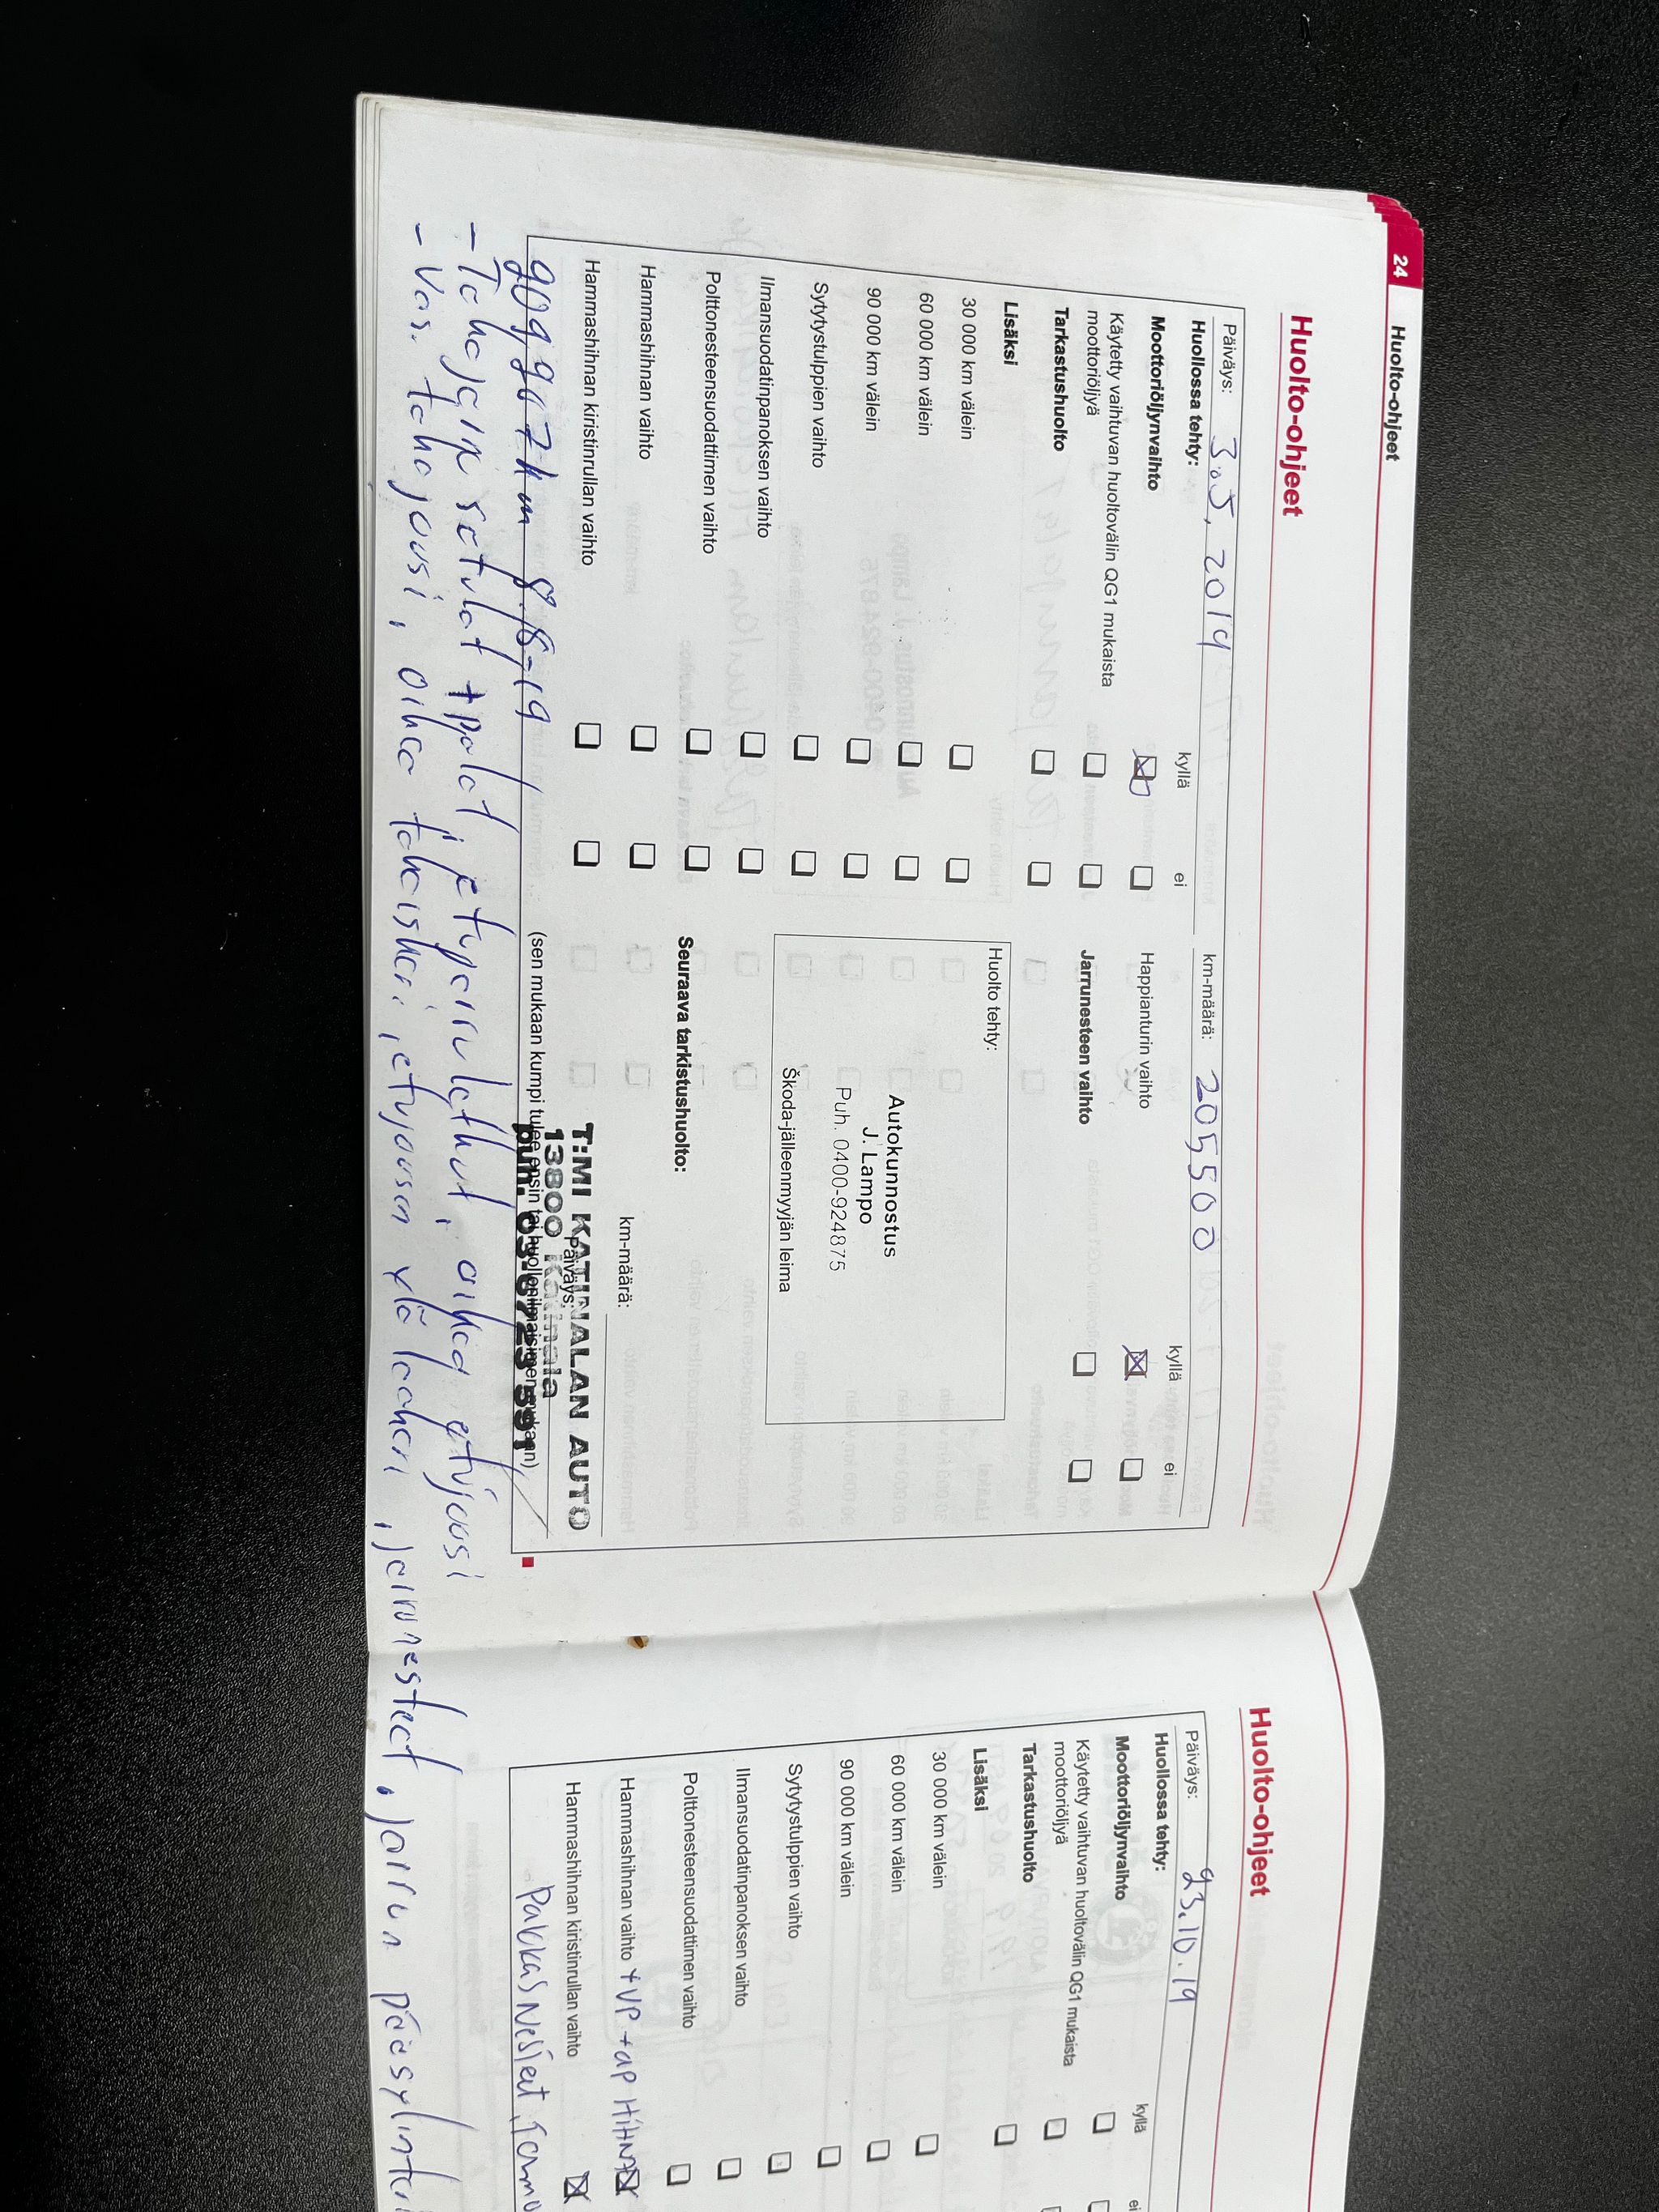 24
Huolto-ohjeet
Huolto-ohjeet
Päiväys: 3.5, 2019
km-määrä: 205500
Huollossa tehty:
kyllä ei
kyllä ei
Moottoriöljynvaihto
Happianturin vaihto
Käytetty vaihtuvan huoltovälin QG1 mukaista
moottoriöljyä
Jarrunesteen vaihto
Tarkastushuolto
Lisäksi
30 000 km välein
60 000 km välein
90 000 km välein
Sytytystulppien vaihto
Ilmansuodatinpanoksen vaihto
Polttonesteensuodattimen vaihto
Hammashihnan vaihto
Hammashihnan kiristinrullan vaihto
Huolto tehty:
Autokunnostus
J. Lampo
Puh. 0400-924875
Škoda-jälleenmyyjän leima
Seuraava tarkistushuolto:
km-määrä:
Päiväys:
(sen mukaan kumpi tulee ensin tai huollonilmaisimen mukaan)
T:MI KATINALAN AUTO
13800 Katinala
puh. 03-6723 591
8.8-19
- Takajarr satulat + palat, jarruletkut, oikea etujousi
- Vas. takajousi, oikea takaiskari, etujousen ylä laakeri, jarrunesteet, jarrun pääsylinteri
Huolto-ohjeet
Päiväys: 23.10.19
Huollossa tehty:
kyllä ei
Moottoriöljynvaihto
Käytetty vaihtuvan huoltovälin QG1 mukaista
moottoriöljyä
Tarkastushuolto
Lisäksi
30 000 km välein
60 000 km välein
90 000 km välein
Sytytystulppien vaihto
Ilmansuodatinpanoksen vaihto
Polttonesteensuodattimen vaihto
Hammashihnan vaihto + VP + ap Hihna
Hammashihnan kiristinrullan vaihto
PakkasNesteet,